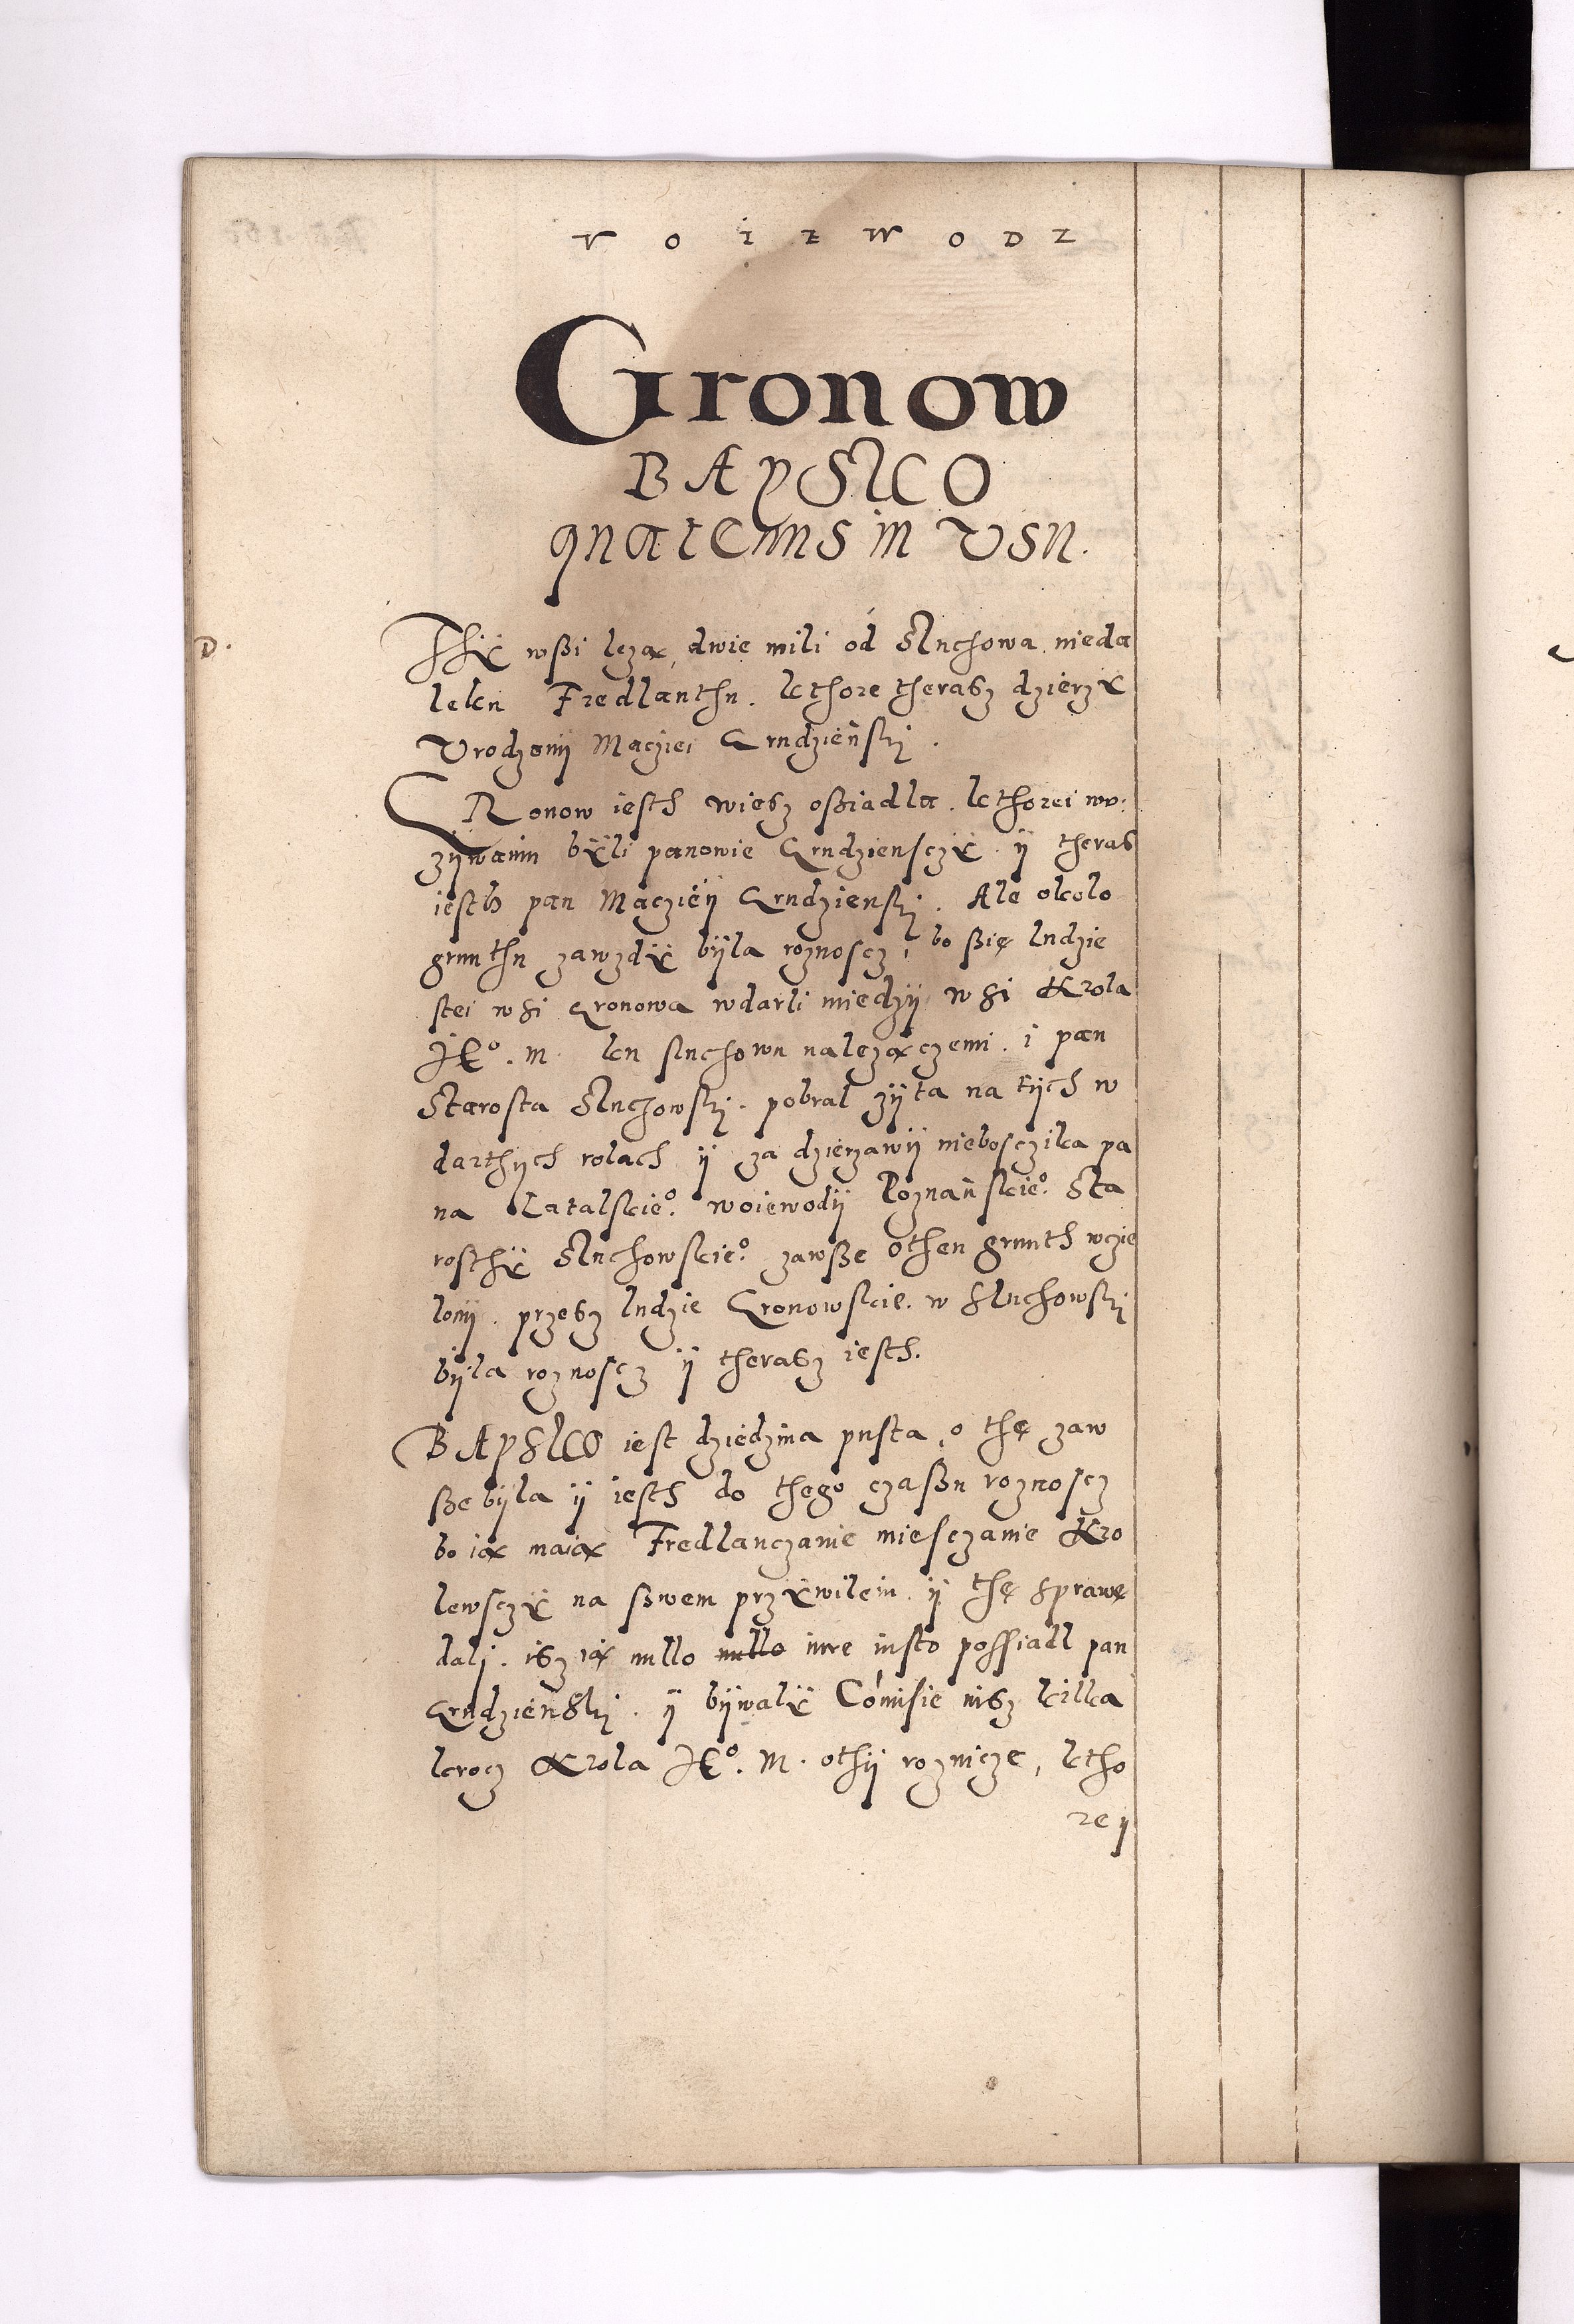 VOIEWODZ
Gronow
BAPSKO
quatenus in Vsu.
D.
Thÿ wßi leząx, dwie mili ód Sluchowa nieda
leku Fredlanthu. kthore therasz dzierzÿ
Vrodzonÿ Maczieÿ Grudzieńskÿ.
GRonow iesth wiesz oßiadla. kthorei w v:
zÿwaniu bÿli panowie Grudziensczÿ ÿ theras
iesth pan Macziéÿ Grudzienskÿ. Ale okolo
grunthu zawzdÿ bÿla roznoscz, bo ßię ludzie
stei wsi Gronowa wdarli miedzÿ wsi Krola
JE°. M. ku sluchowu należączemi. i pan
Starosta Sluchowskÿ. pobral zÿta na tÿch w
darthÿch rolach ÿ za dzierzawÿ niebosczika pa
na Latalskie°. woiewodÿ Poznańskie°. Sta
rosthÿ Sluchowskie°. zawße othen grunth wczie
lonÿ. przesz ludzie Gronowskie. w Sluchowskÿ
bÿla roznoscz ÿ therasz iesth.
BAPSKO iest dziedzina pusta, o thę zaw
ße bÿla ÿ iesth do thego czaßu roznoscz
bo ią maią Fredlanczanie miesczanie Kro
lewsczÿ na ßwem przÿwileiu. ÿ thę sprawę
dalj. isz ią nullo nullo iure iusto possiadl pan
Grudzieńskÿ. ÿ bÿwalÿ Comisie nisz kilka
krocz Krola JE°. M. othÿ roznicze, ktho
reÿ